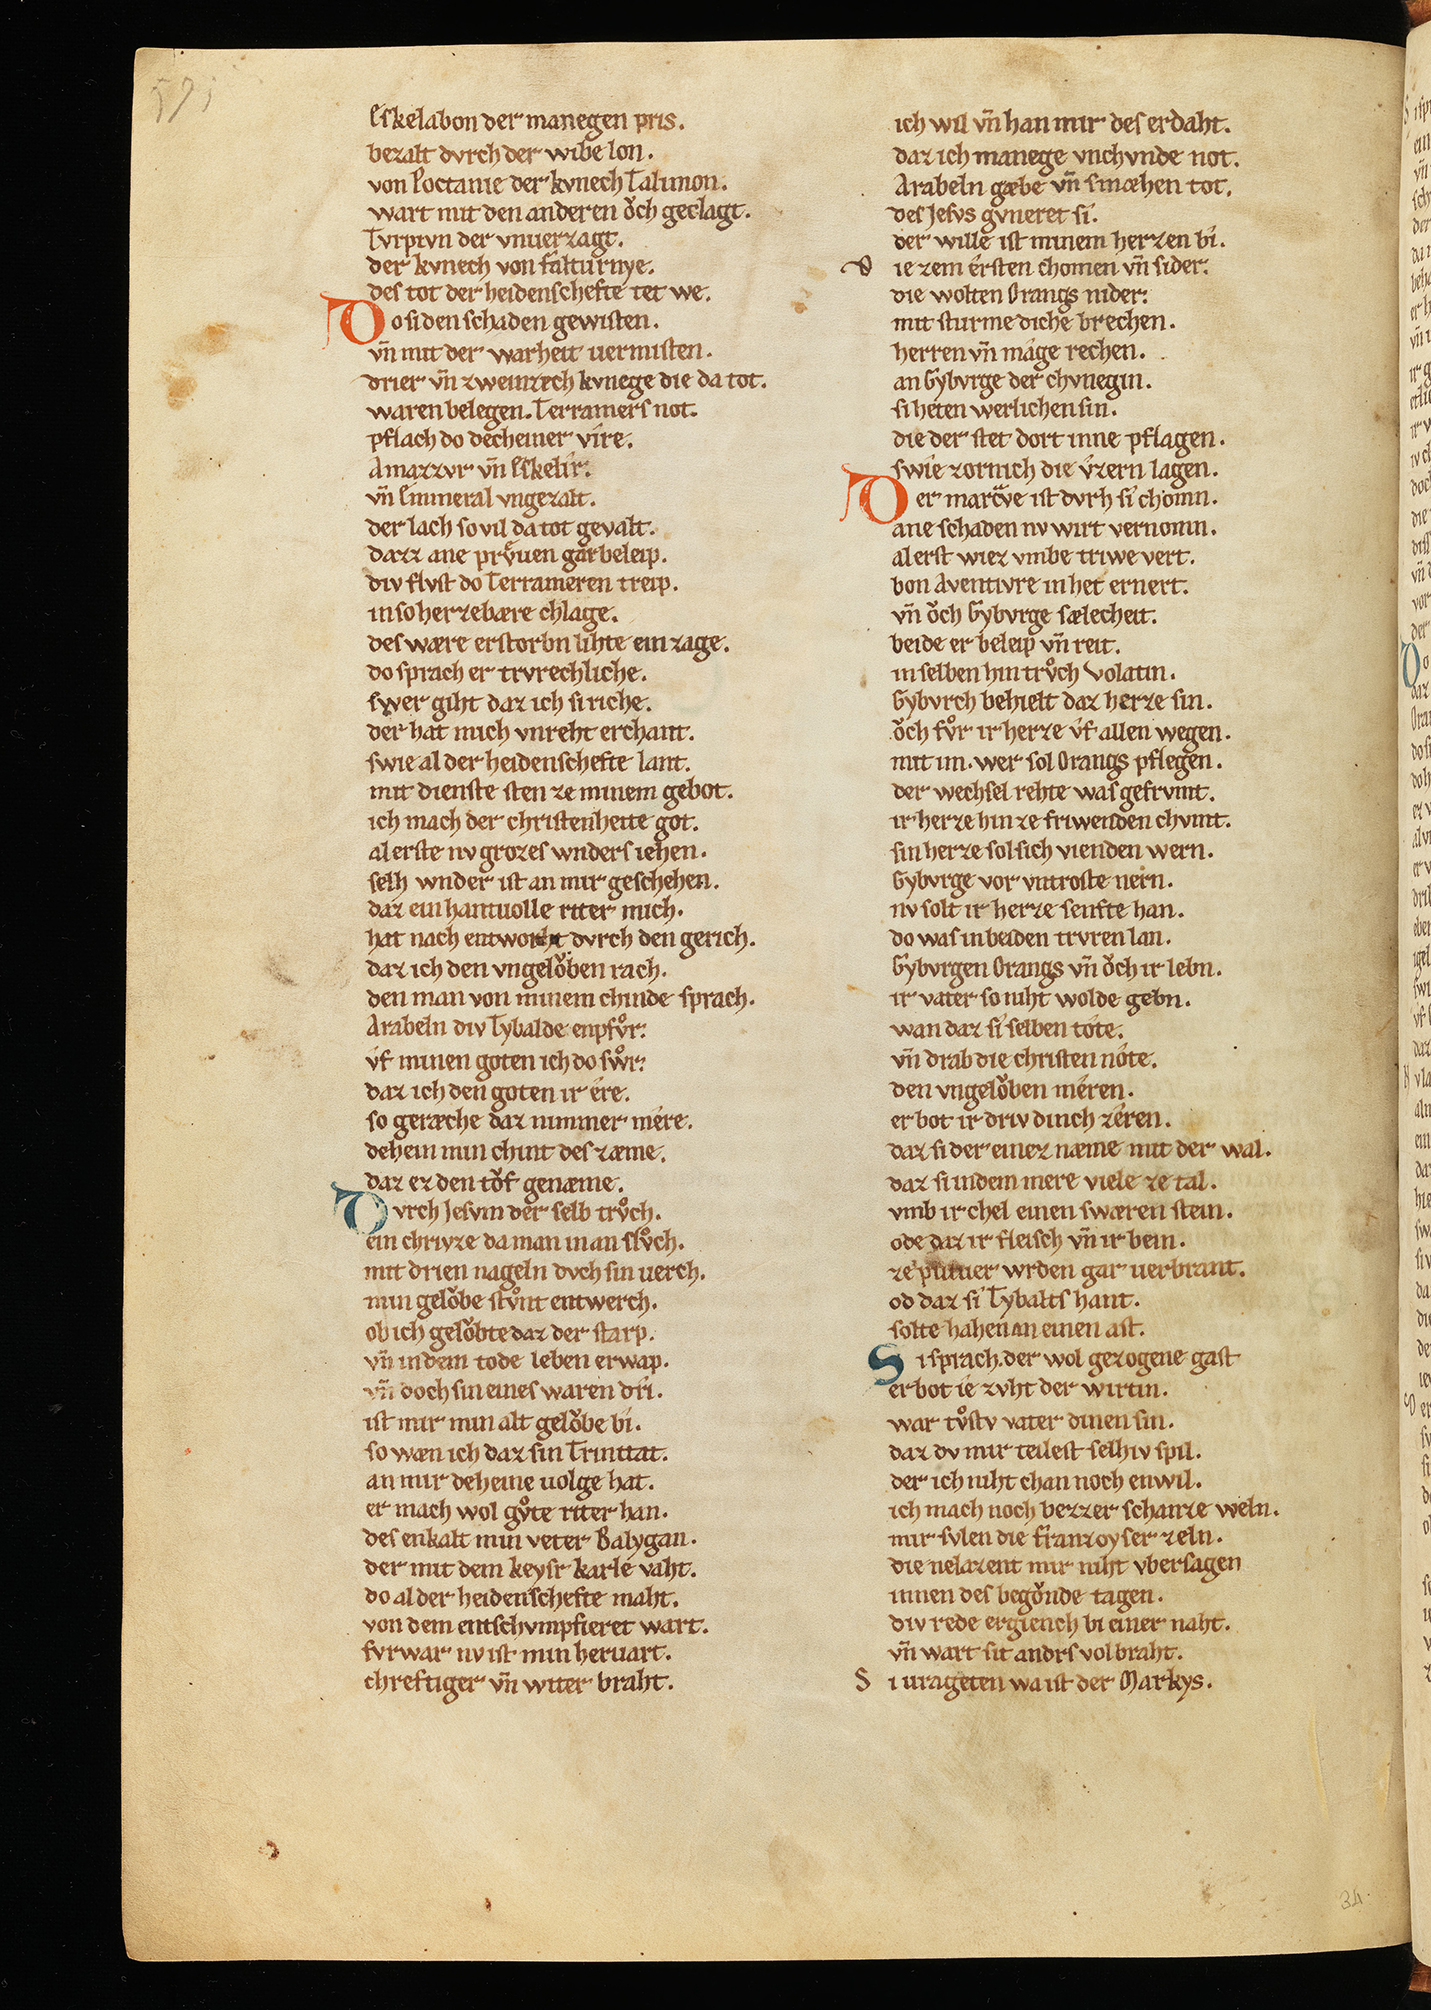 591
Eskelabon der manegen pris.
bezalt dvrch der wibe lon.
von Poctanie der kvnech Talimon.
wart mit den anderen ǒch geclagt.
Tvrpivn der vnuerzagt.
der kvnech von falturnye.
des tot der heidenschefte tet we.
Do si den schaden gewisten.
vn̄ mit der warheit uermisten.
drier vn̄ zweinzech kvnege die da tot.
waren belegen. Terramers not.
pflach do decheiner vire.
Amazzvr vn̄ Eskelir.
vn̄ Emmeral vngezalt.
der lach so vil da tot gevalt.
dazz ane prv̊uen gar beleip.
div flvst do Terrameren treip.
in so herzebære chlage.
des wære erstorbn lihte ein zage.
do sprach er trvrechliche.
swer giht daz ich si riche.
der hat mich vnreht erchant.
swie al der heidenschefte lant.
mit dienste sten ze minem gebot.
ich mach der christenheite got.
alerste nv grozes wnders iehen.
selh wnder ist an mir geschehen.
daz ein hantuolle riter mich.
hat nach entworht dvrch den gerich.
daz ich den vngelǒben rach.
den man von minem chinde sprach.
Arabeln div Tybalde enpfv̊r.
v́f minen goten ich do sẘr.
daz ich den goten ir ére.
so geræche daz nimmer mére.
dehein min chint des zæme.
daz ez den tǒf genæme.
Dvrch Jesvm der selb trv̊ch.
ein chrivze da man in an slv̊ch.
mit drien nageln dvch sin uerch.
min gelǒbe stv̊nt entwerch.
ob ich gelǒbte daz der starp.
vn̄ in dem tode leben erwap.
vn̄ doch sin eines waren dri.
ist mir min alt gelǒbe bi.
so wæn ich daz sin Trinitat.
an mir deheine uolge hat.
er mach wol gv̊te riter han.
des enkalt min veter Balygan.
der mit dem keysr karle vaht.
do al der heidenschefte maht.
von dem entschvmpfieret wart.
fvrwar nv ist min heruart.
chreftiger vn̄ witer braht.
ich wil vn̄ han mir des erdaht.
daz ich manege vnchvnde not.
Arabeln gæbe vn̄ smæhen tot.
des Jesvs gvneret si.
der wille ist minem herzen bi.
die zem érsten chomen vn̄ sider.
die wolten Orangs nider.
mit sturme diche brechen.
herren vn̄ mage rechen.
an Gybvrge der chvnegin.
si heten werlichen sin.
die der stet dort inne pflagen.
swie zornich die v́zern lagen.
Der marcve ist dvrh si chomn.
ane schaden nv wirt vernomn.
alerst wiez vmbe triwe vert.
bon Aventivre in het ernert.
vn̄ ǒch Gybvrge sælecheit.
beide er beleip vn̄ reit.
in selben hin trv̊ch Volatin.
Gybvrch behielt daz herze sin.
ǒch fv̊r ir herze v́f allen wegen.
mit im. wer sol Orangs pflegen.
der wechsel rehte was gefrvmt.
ir herze hin ze friwenden chvmt.
sin herze sol sich vienden wern.
Gybvrge vor vntroste nern.
nv solt ir herze senfte han.
do was in beiden trvren lan.
Gybvrgen Orangs vn̄ ǒch ir lebn.
ir vater so niht wolde gebn.
wan daz si selben tóte.
vn̄ drab die christen nóte.
den vngelǒben méren.
er bot ir driv dinch zéren.
daz si der einez næme mit der wal.
daz si in dem mere viele ze tal.
vmb ir chel einen swæren stein.
ode daz ir fleisch vn̄ ir bein.
ze puluer wrden gar uerbrant.
od daz si Tybalts hant.
solte hahen an einen ast.
Si sprach. der wol gezogene gast
erbot ie zvht der wirtin.
war tv̊stv vater dinen sin.
daz dv mir teilest selhiv spil.
der ich niht chan noch enwil.
ich mach noch bezzer schanze weln.
mir svlen die franzoyser zeln.
die nelazent mir niht vbersagen
innen des begǒnde tagen.
div rede ergiench bi einer naht.
vn̄ wart sit andrs volbraht.
Si urageten wa ist der Markys.
34